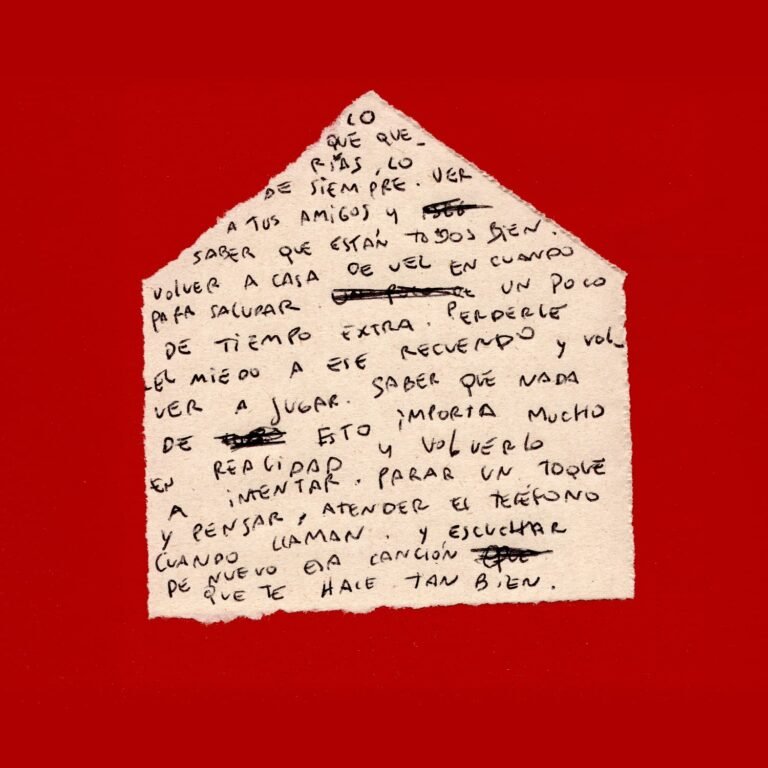 LO
QUE QUE_
RÍAS, LO
DE SIEMPRE. VER
A TUS AMIGOS Y
SABER QUE ESTÁN TODOS BIEN.
VOLVER A CASA DE VEZ EN CUANDO
PARA SALUDAR UN POCO
DE TIEMPO EXTRA. PERDERLE
EL MIEDO A ESE RECUENDO Y VOL_
VER A JUGAR. SABER QUE NADA
DE ESTO IMPORTA MUCHO
EN REALIDAD Y VOLVERLO
A INTENTAR. PARAR UN TOQUE
Y PENSAR, ATENDER EL TELÉFONO
CUANDO LLAMAN. Y ESCUCHAR
DE NUEVO ESA CANCIÓN
QUE TE HACE TAN BIEN.